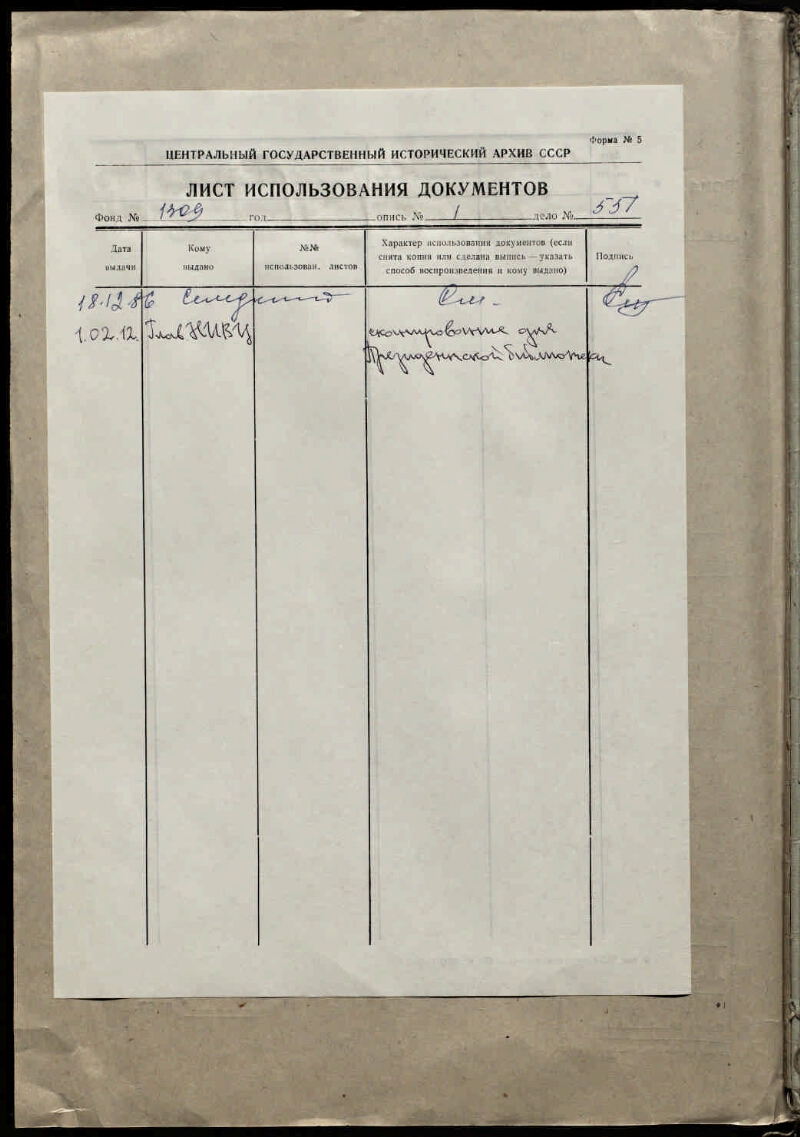 Форма № 5
ЦЕНТРАЛЬНЫЙ ГОСУДАРСТВЕННЫЙ ИСТОРИЧЕСКИЙ АРХИВ СССР
ЛИСТ ИСПОЛЬЗОВАНИЯ ДОКУМЕНТОВ
Фонд № 1309 год опись № 1 дело № 551
Дата выдачи
Кому выдано
№№ использован. листов
Характер использования документов (если
снята копия или сделана выпись — указать
способ воспроизведения и кому выдано)
Подпись
18.12.86
1.02.12. ГлавНИВЦ сканирование для
Президентской библиотеки